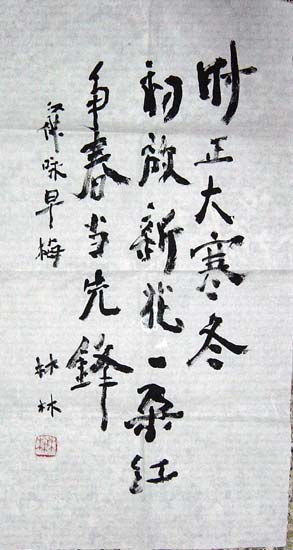 时正大寒冬
初新花一朵红
争春当先锋
汉俳咏早梅
林林